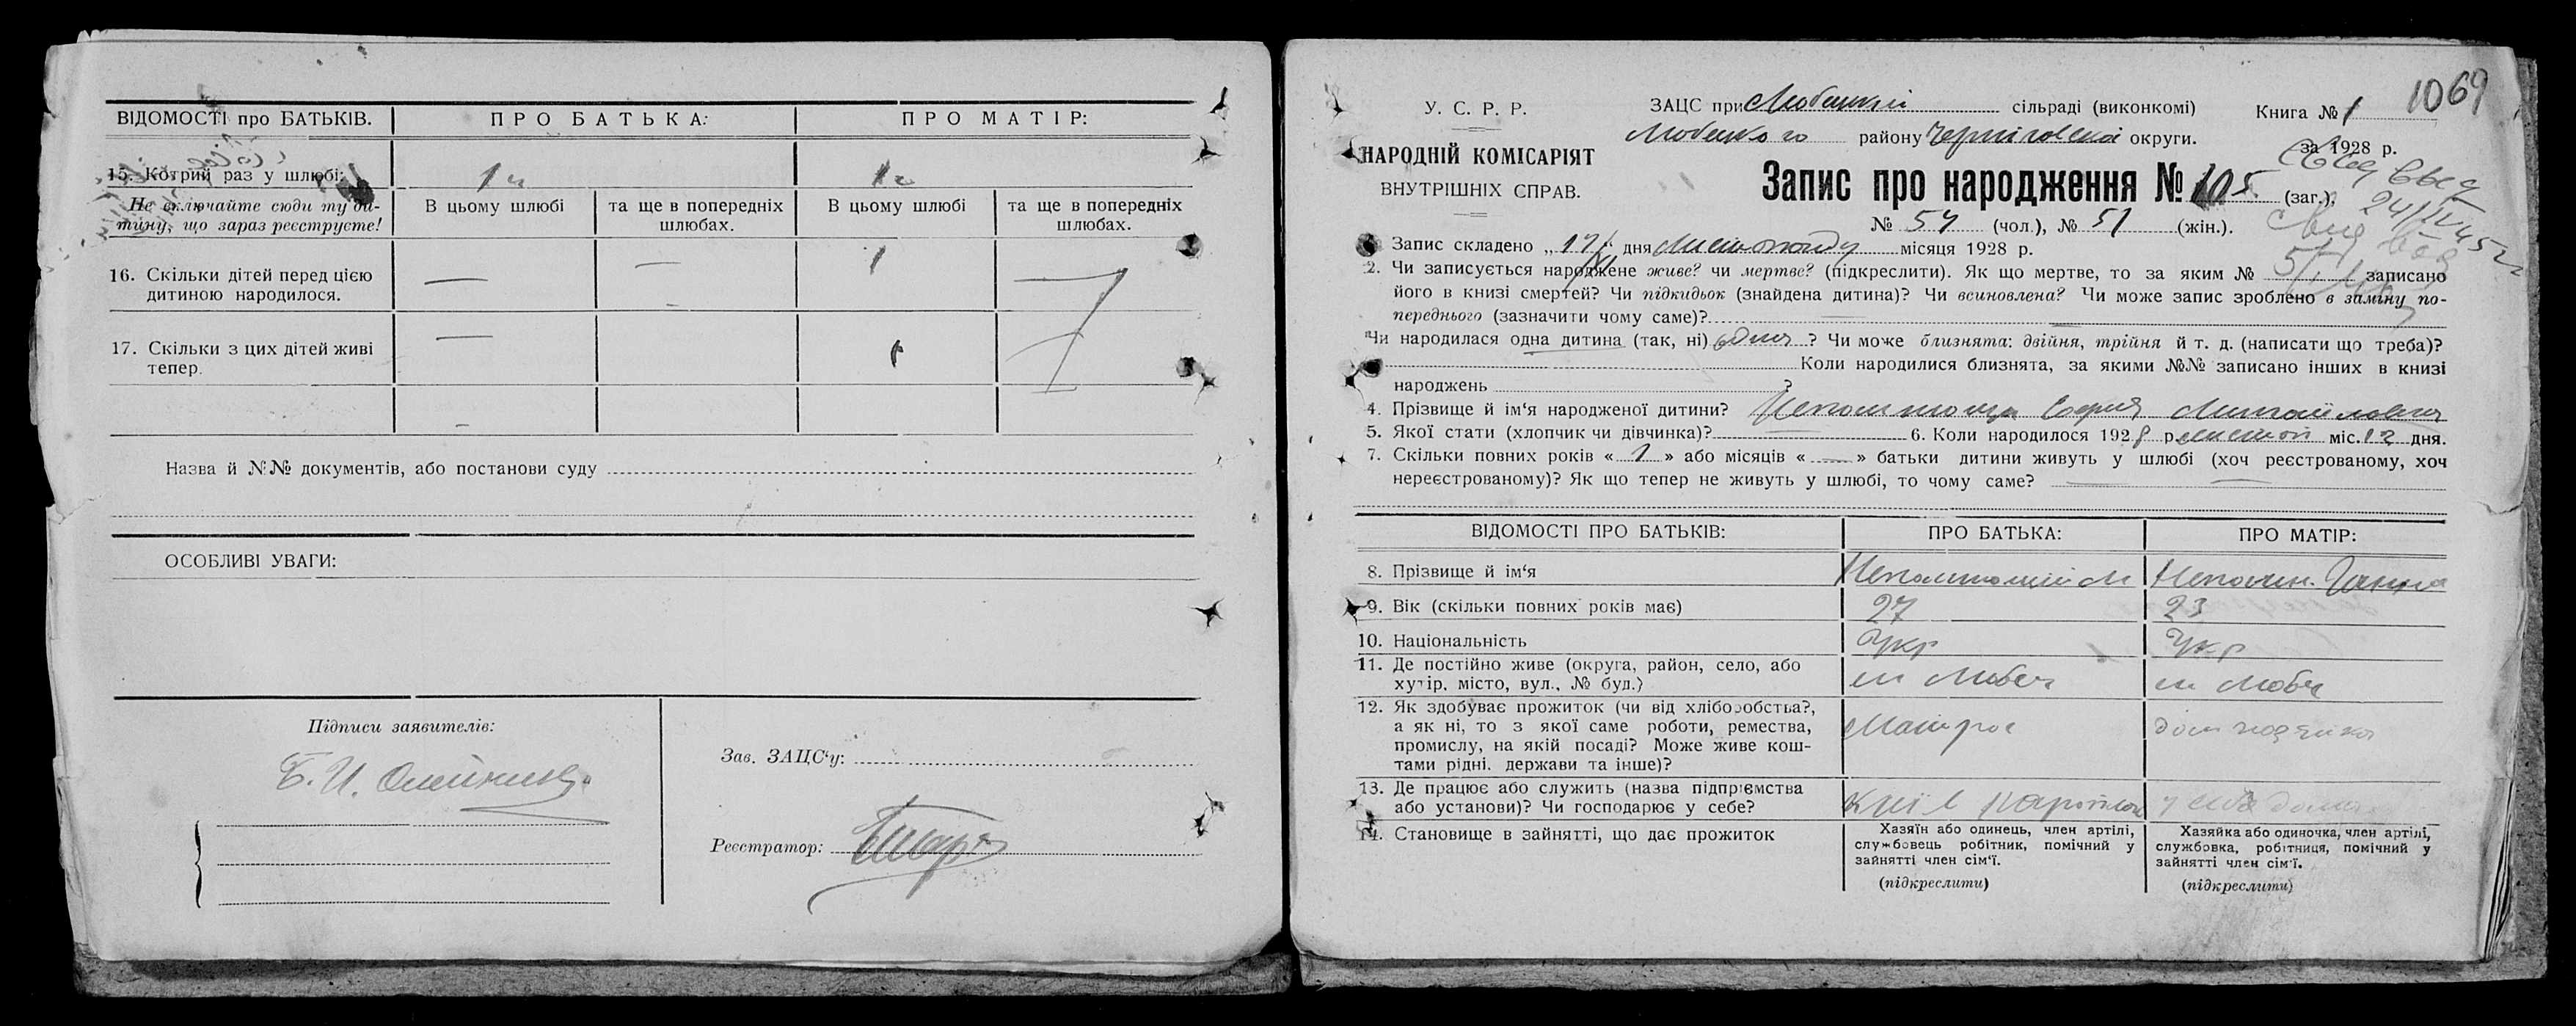 ВІДОМОСТІ про БАТЬКІВ. ПРО БАТЬКА: ПРО МАТІР:
15. Котрий раз у шлюбі: 1й 1й
Не включайте сюди ту ди-
тину, що зараз реєструєте!
В цьому шлюбі
та ще в попередніх
шлюбах.
В цьому шлюбі
та ще в попередніх
шлюбах.
16. Скільки дітей перед цією
дитиною народилося.
— — 1 —
17. Скільки з цих дітей живі
тепер.
— 1
Назва й №№ документів, або постанови суду
ОСОБЛИВІ УВАГИ:
Підписи заявителів:
Зав. ЗАЦС‘у:
Реєстратор:
1069
У. С. Р. Р.
НАРОДНІЙ КОМІСАРІЯТ
ВНУТРІШНІХ СПРАВ.
ЗАЦС при Любецкій сільраді (виконкомі)
Любецкого району Черніговской округи.
Книга № 1
за 1928 р.
Запис про народження № 105 (заг.),
№ 54 (чол.), № 51 (жін.).
24/IV 45
Запис складено „17/ дня листопаду місяця 1928 р.
2. Чи записується народжене живе? чи мертве? (підкреслити). Як що мертве, то за яким № записано
його в книзі смертей? Чи підкидьок (знайдена дитина)? Чи всиновлена? Чи може запис зроблено в заміну по-
переднього (зазначити чому саме)?
Чи народилася одна дитина (так, ні) одна ? Чи може близнята: двійня, трійня й т. д. (написати що треба)?
Коли народилися близнята, за якими №№ записано інших в книзі
народжень ?
4. Прізвище й ім‘я народженої дитини? Непомнюща Михайловна
5. Якої стати (хлопчик чи дівчинка)? 6. Коли народилося 1928 р. листоп міс. 12 дня.
7. Скільки повних років « 1 » або місяців « — » батьки дитини живуть у шлюбі (хоч реєстрованому, хоч
нереєстрованому)? Як що тепер не живуть у шлюбі, то чому саме?
ВІДОМОСТІ ПРО БАТЬКІВ: ПРО БАТЬКА: ПРО МАТІР:
8. Прізвище й ім‘я Непомнющий М Непомн. Ганна
9. Вік (скільки повних років має) 27 23
10. Національність Укр Укр
11. Де постійно живе (округа, район, село, або
хутір, місто, вул., № буд.)
м Любеч м Любч
12. Як здобуває прожиток (чи від хліборобства?,
а як ні, то з якої саме роботи, ремества,
промислу, на якій посаді? Може живе кош-
тами рідні, держави та інше)?
Матрос дом хозяйка
13. Де працює або служить (назва підприємства
або установи)? Чи господарює у себе?
Київ у себе дома
14. Становище в зайнятті, що дає прожиток
Хазяїн або одинець, член артілі,
службовець робітник, помічний у
зайнятті член сім‘ї.
(підкреслити)
Хазяйка або одиночка, член артілі,
службовка, робітниця, помічний у
зайнятті член сім‘ї.
(підкреслити)